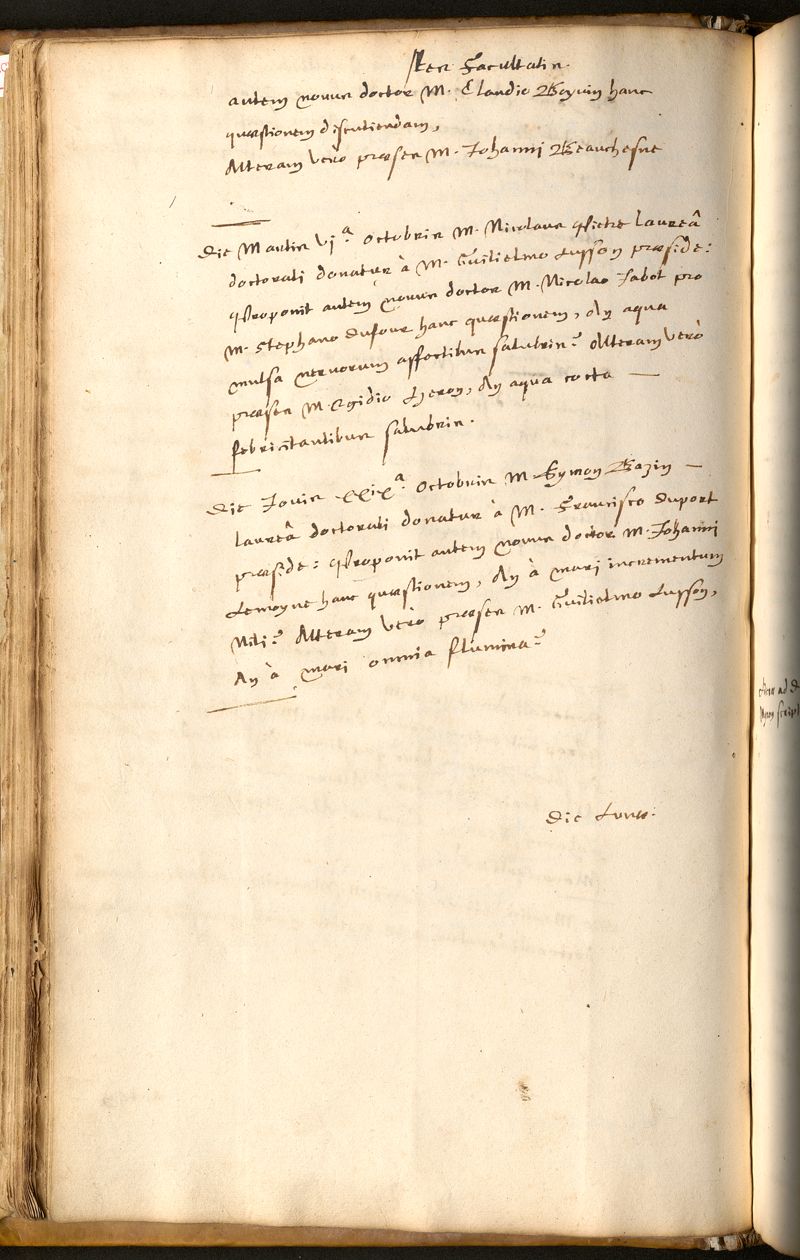 Res Facultatis.
autem novus doctor M. Claudio Bazin hanc
quæstionem discutiendam,
Alteram verò præses M. Johanni Beauchesne
Die Martis vj.a Octobris M. Nicolaus Pietre laureâ
doctorali donatur à M. Guilielmo Lusson præside:
Proponit autem novus doctor M. Nicolao Jabot pro
M. Stephano Dufour hanc quæstionem, An aqua
mulsa nervorum affectibus salubris? Alteram verò
præses M. Egidio Heron, An aqua cocta —
febricitantibus salubris.
Die Jovis xxix.a Octobris M. Symon Bazin —
laureâ doctorali donatur à M. Francisco Duport
præside: Proponit autem novus doctor M. Johanni
Lemoyne hanc quæstionem, An à mari incrementum
Nili? Alteram verò præses M. Guilielmo Lusson,
An à mari omnia flumina?
Die Lunæ.